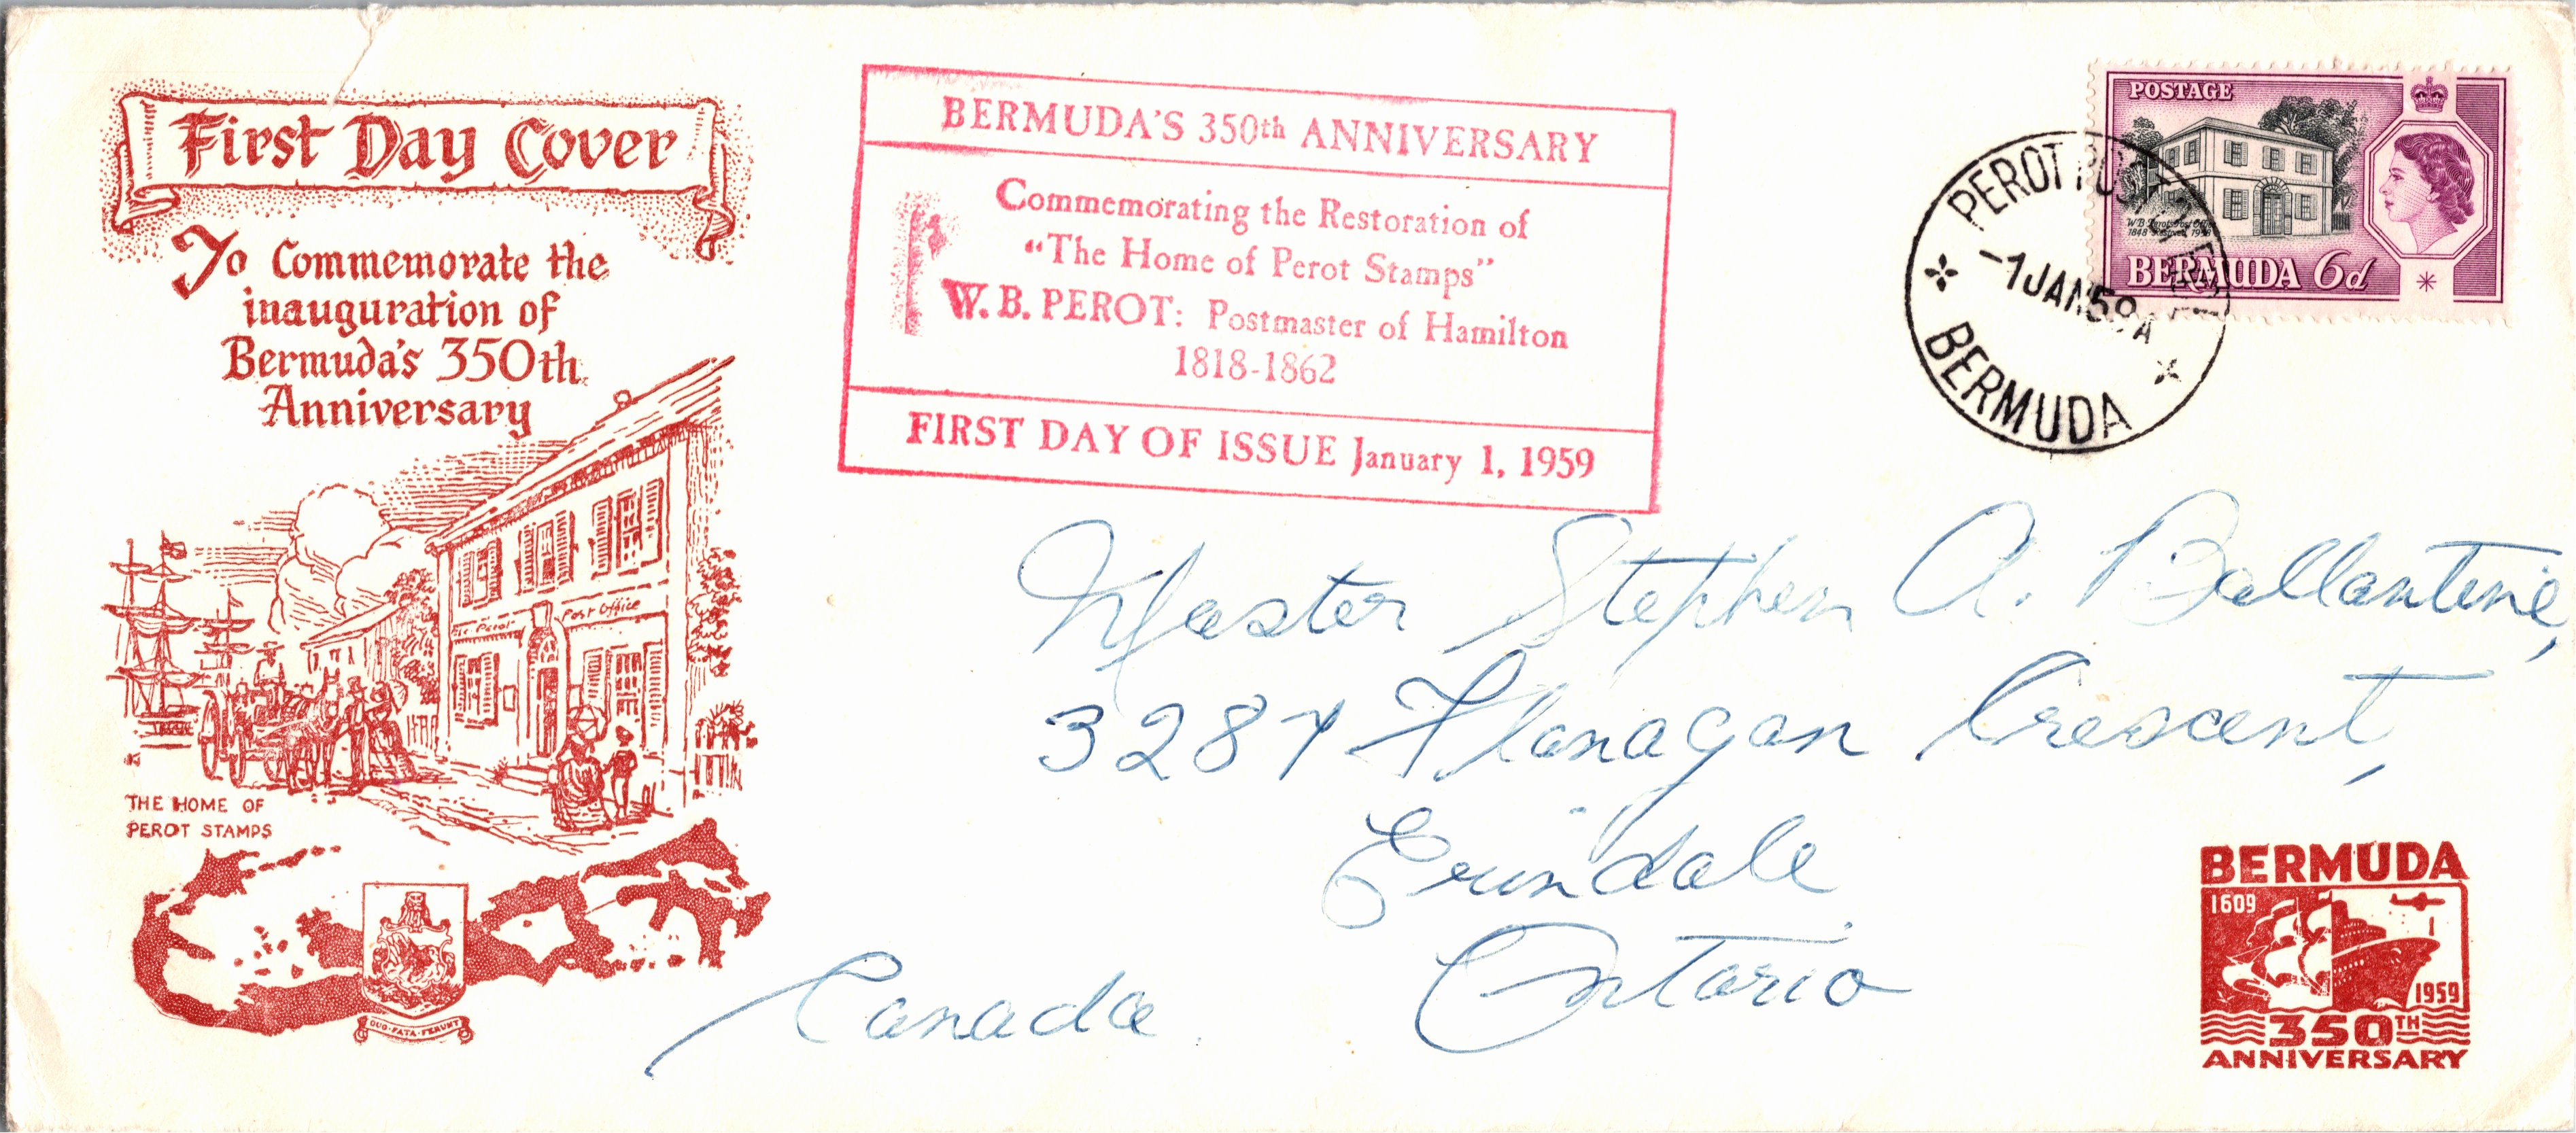 First Day Cover
To Commemorate the
inauguration of
Bermuda's 350th
Anniversary
Perot Post Office
THE HOME OF
PEROT STAMPS
QUO · FATA · FERUNT
BERMUDA'S 350th ANNIVERSARY
Commemorating the Restoration of
"The Home of Perot Stamps"
W. B. PEROT: Postmaster of Hamilton
1818-1862
FIRST DAY OF ISSUE January 1, 1959
POSTAGE
W.B. Perot's Post Office
1848 Restored 1958
BERMUDA 6d
PEROT POST OFFICE
-1 JAN 59 A
BERMUDA
Master Stephen A. Ballantine,
3287 Flanagan Crescent,
Erindale
Ontario
Canada
BERMUDA
1609
1959
350TH
ANNIVERSARY